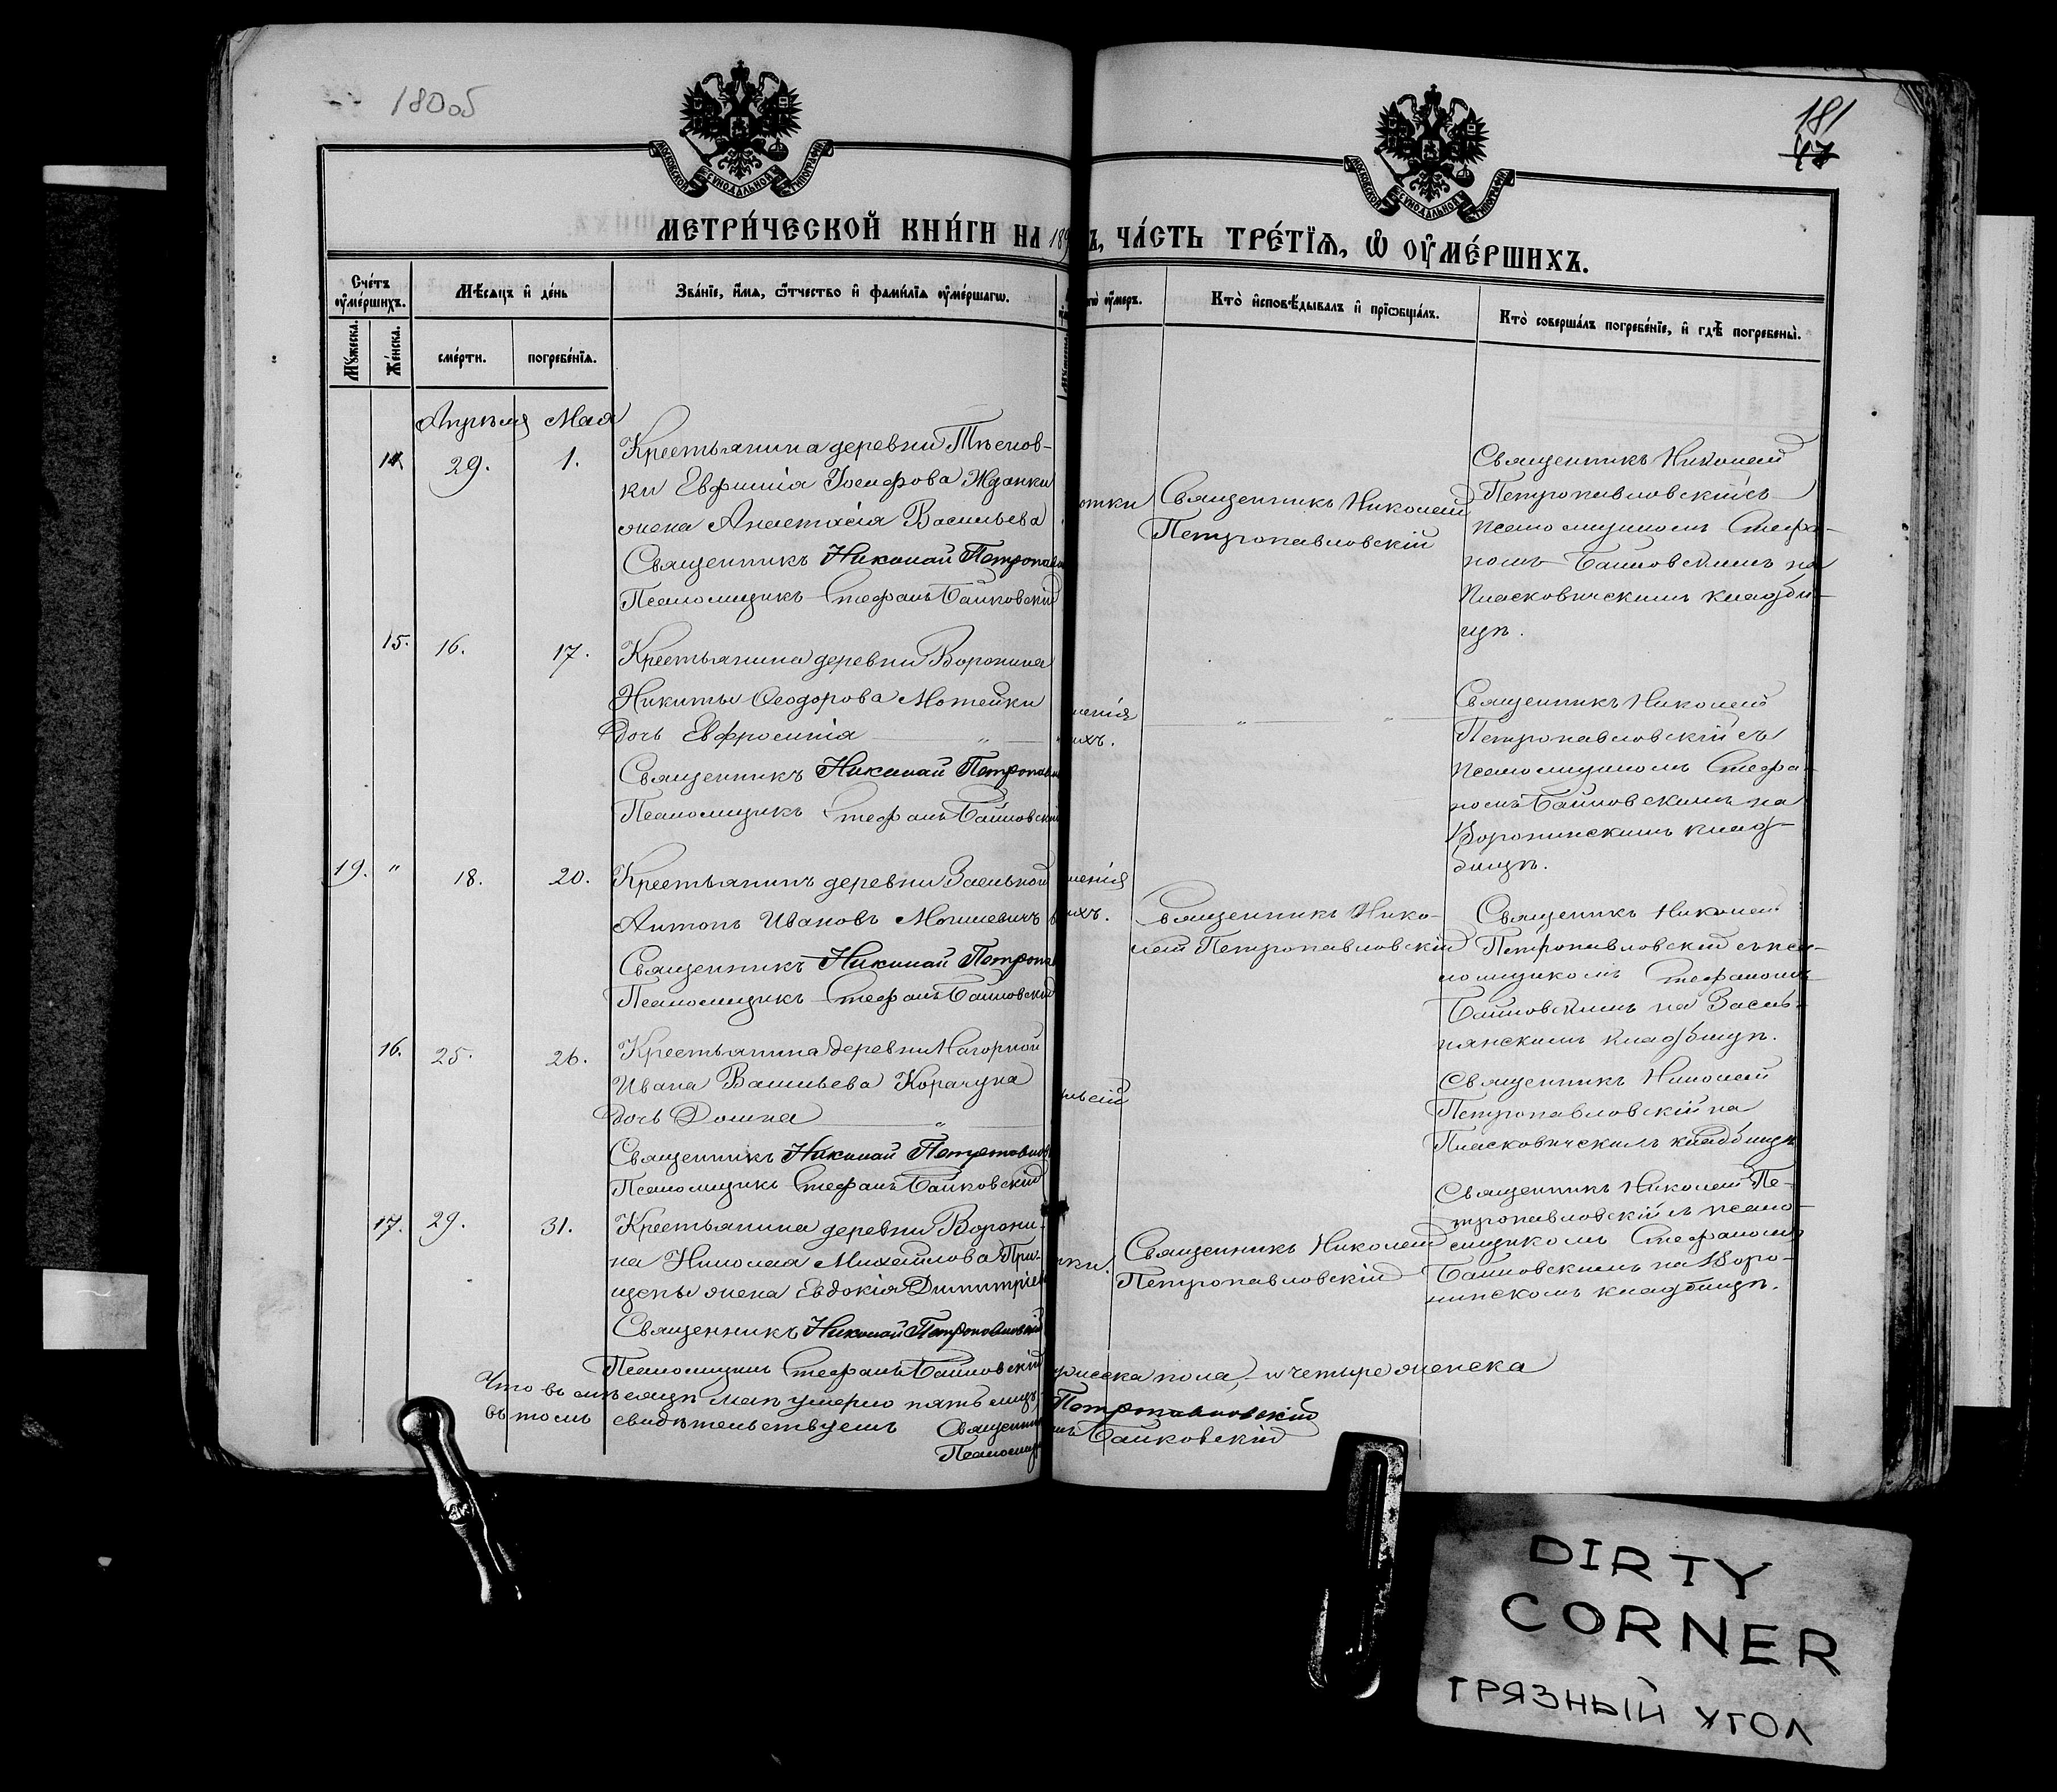 180об
181
47
МОСКОВСКОЙ СУНОДАЛЬНОЙ ТИПОГРАФІИ
МОСКОВСКОЙ СУНОДАЛЬНОЙ ТИПОГРАФІИ
МЕТРИ́ЧЕСКОЙ КНИ́ГИ НА 189 Ъ, ЧА́СТЬ ТРЕ́ТЇѦ, Ѡ҆ ОУ҆МЕ́РШИХЪ.
Сче́тъ оу҆ме́ршихъ.
Мѣ́сѧцъ и҆ де́нь
Зва́нїе, и҆́мѧ, ѻ҆́тчество и҆ фами́лїѧ оу҆ме́ршагѡ.
оу҆меръ.
Кто̀ и҆сповѣ́дывалъ и҆ прїѡбща́лъ.
Кто̀ соверша́лъ погребе́нїе, и҆ гдѣ̀ погребены̀.
Мꙋ́жеска.
Же́нска.
сме́рти.
погребе́нїѧ.
Апрѣля Мая
14 29. 1. Крестьянина деревни Тѣснов-
ки Евфимія Іосифова Жданки
жена Анастасія Васильева
Священникъ Николай Петропавл
Псаломщикъ Стефанъ Балковскій
отки
Священникъ Николай
Петропавловскій
Священникъ Николай
Петропавловскій съ
псаломщикомъ Стефа-
номъ Балковскимъ на
Пласковичскимъ кладби-
щѣ.
15. 16. 17. Крестьянина деревни Воронина
Никиты Ѳеодорова Мотейки
дочь Евфросинія "
Священникъ Николай Петропавл
Псаломщикъ Стефанъ Балковскій
ленія
ихъ.
" "
Священникъ Николай
Петропавловскій съ
псаломщикомъ Стефа-
номъ Балковскимъ на
Воронинскимъ клад-
бищѣ.
19. " 18. 20. Крестьянинъ деревни Засльной
Антонъ Ивановъ Мочилевичъ
Священникъ Николай Петропа
Псаломщикъ Стефанъ Балковскій
ленія
ихъ.
Священникъ Нико-
лай Петропавловскій
Священникъ Николай
Петропавловскій съ пса-
ломщикомъ Стефаномъ
Балковскимъ на Засль-
нянскимъ кладбищѣ.
16. 25. 26. Крестьянина деревни Нагорной
Ивана Васильева Корачуна
дочь Домна "
Священникъ Николай Петропавлов
Псаломщикъ Стефанъ Балковскій
Священникъ Николай
Петропавловскій на
Пласковичскимъ кладбищѣ
17. 29. 31. Крестьянина деревни Ворони-
на Николая Михайлова При-
щепы жена Евдокія Димитріев
Священникъ Николай Петропавловскій
Псаломщикъ Стефанъ Балковскій
Священникъ Николай
Петропавловскій
Священникъ Николай Пе-
тропавловскій съ псало-
мщикомъ Стефаномъ
Балковскимъ на Воро-
нинскомъ кладбищѣ.
Что въ мѣсяцѣ маѣ умерло пять лицъ, пола, и четыре женска
въ томъ свидѣтельствуемъ Священник Петропавловскій
Псаломщ Балковскій
DIRTY
CORNER
ГРЯЗНЫЙ УГОЛ